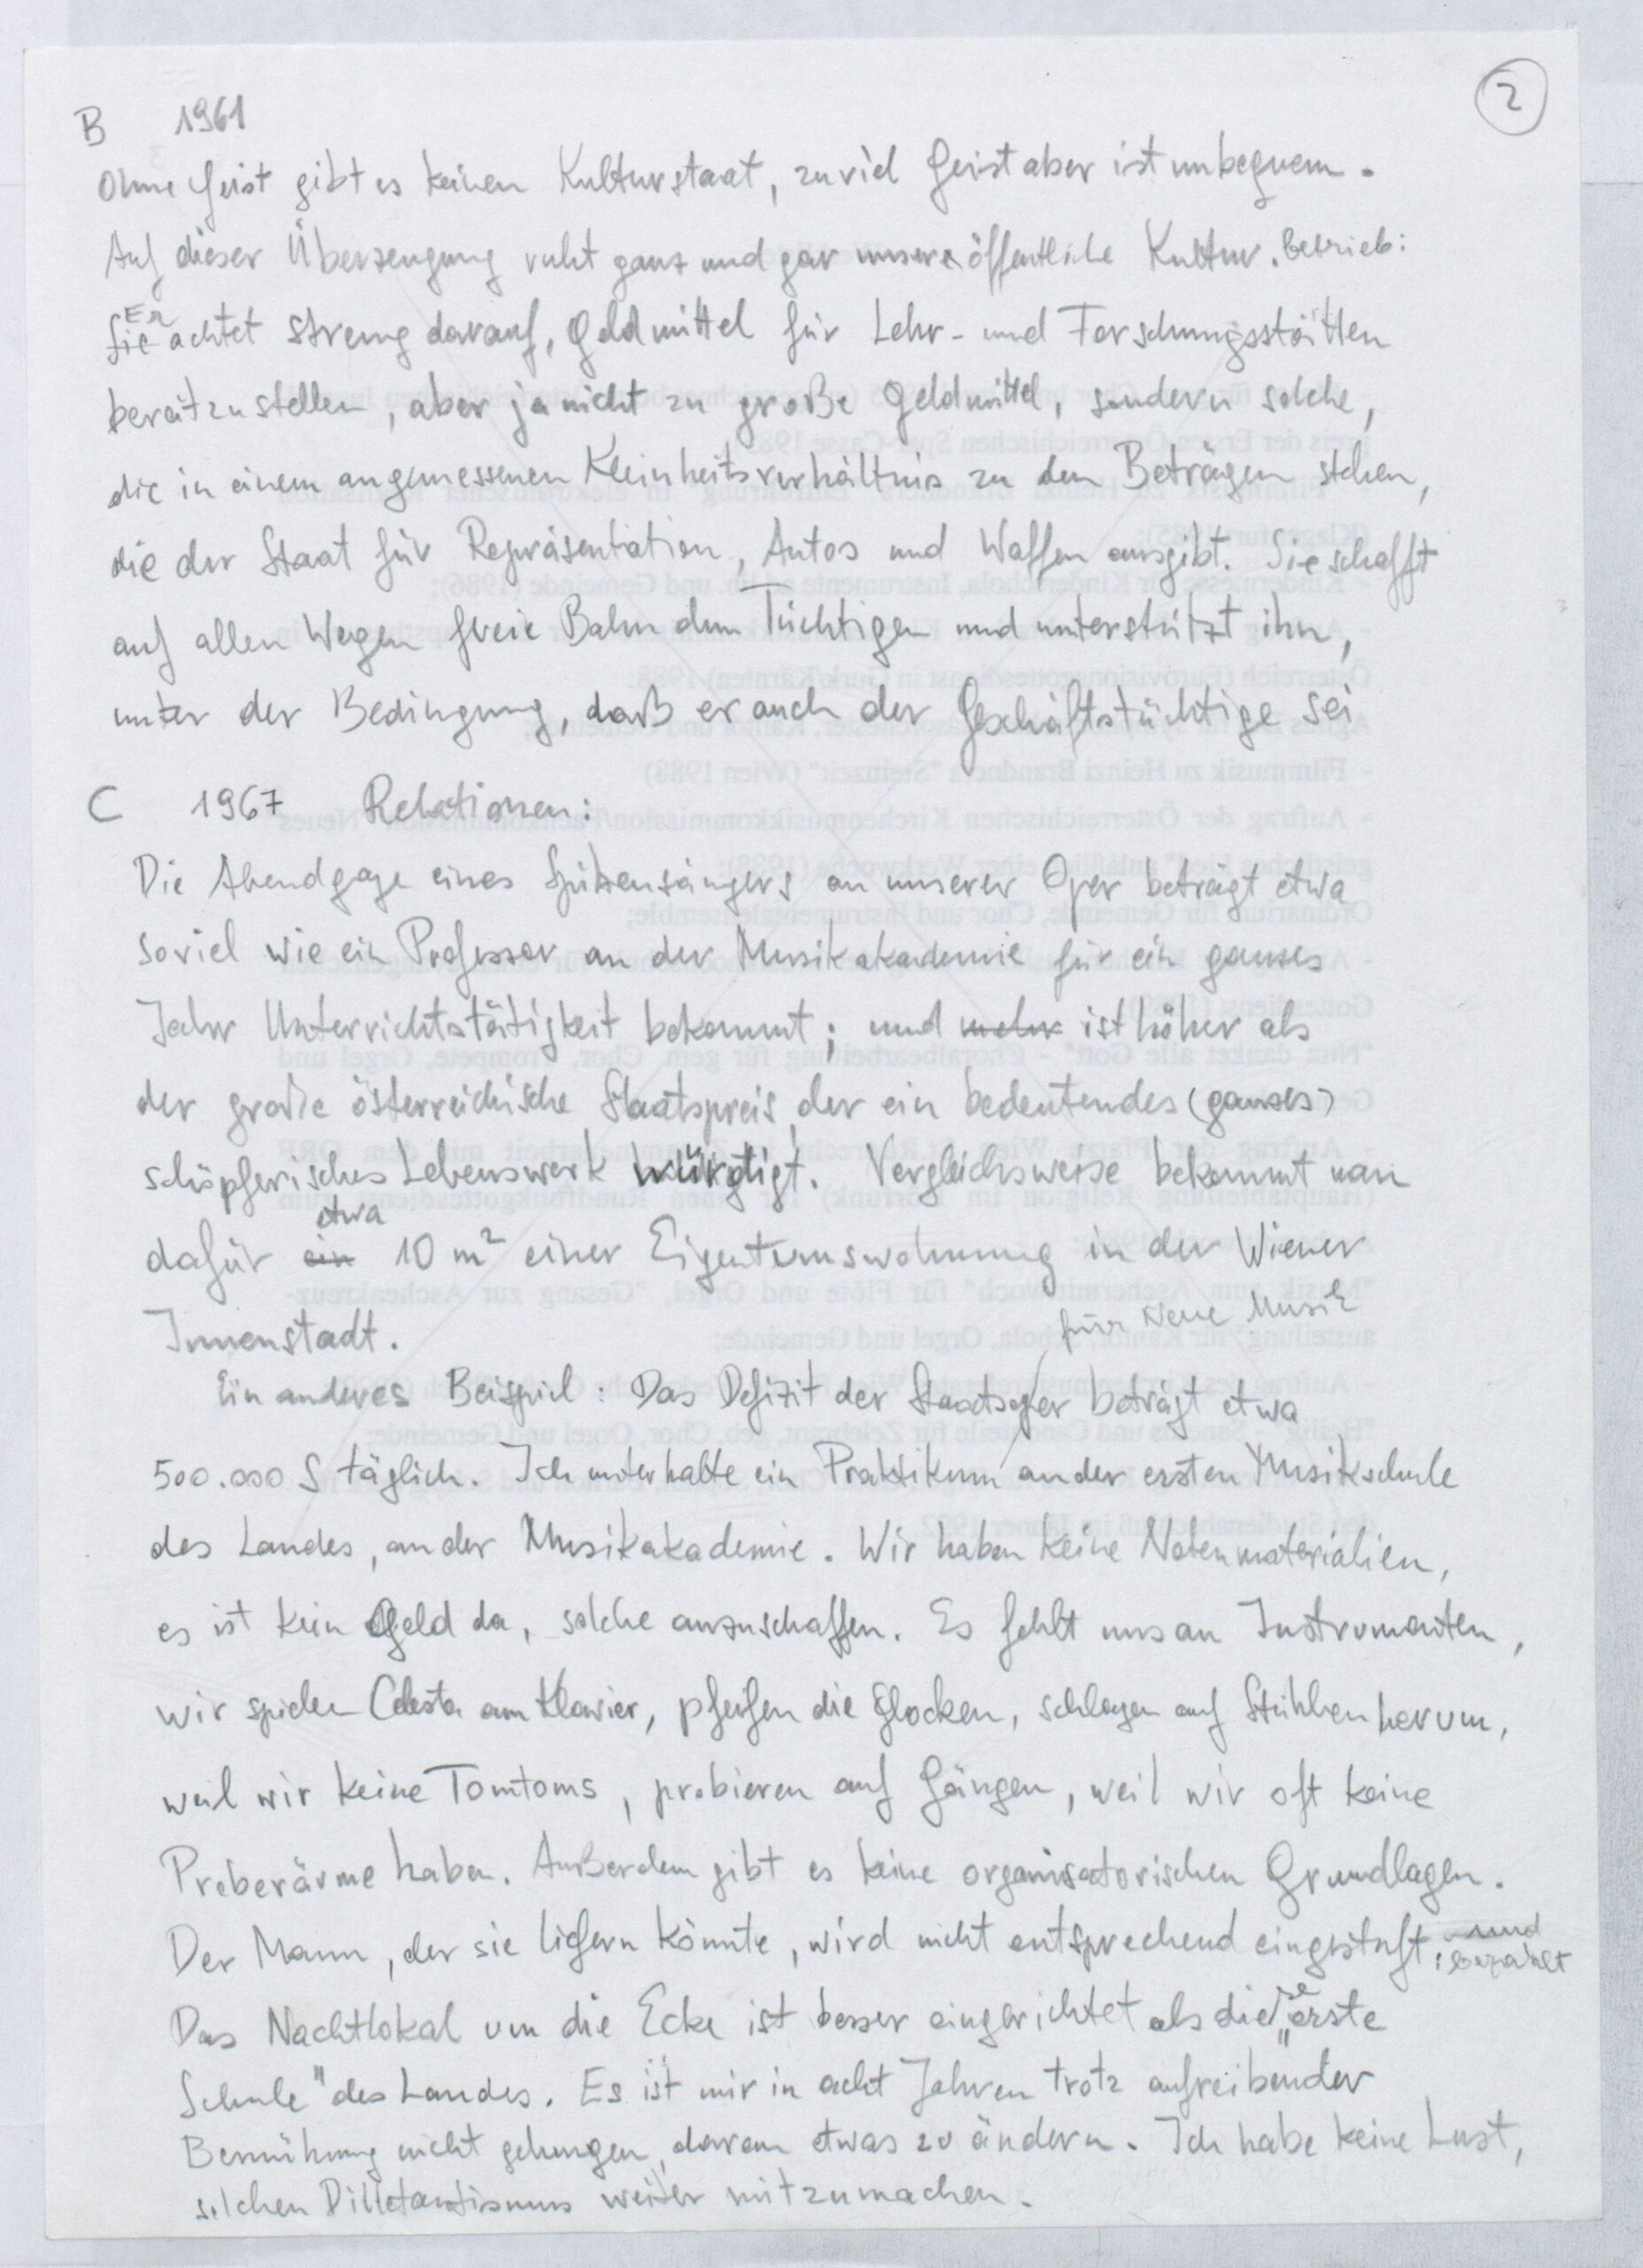 2
B 1961
Ohne Geist gibt es keinen Kulturstaat, zuviel Geist aber ist unbequem.
Auf dieser Überzeugung ruht ganz und gar unsere öffentliche Kultur. betrieb:
Sie Er achtet streng darauf, Geldmittel für Lehr- und Forschungsstätten
bereitzustellen, aber ja nicht zu große Geldmittel, sondern solche,
die in einem angemessenen Kleinheitsverhältnis zu den Beträgen stehen,
die der Staat für Repräsentation, Autos und Waffen ausgibt. Sie schafft
auf allen Wegen freie Bahn dem Tüchtigen und unterstützt ihn,
unter der Bedingung, daß er auch der Geschäftstüchtige sei
C 1967 Relationen:
Die Abendgage eines Spitzensängers an unserer Oper beträgt etwa
soviel wie ein Professor an der Musikakademie für ein ganzes
Jahr Unterrichtstätigkeit bekommt; und mehr ist höher als
der große österreichische Staatspreis, der ein bedeutendes (ganzes)
schöpferisches Lebenswerk würdigt. Vergleichsweise bekommt man
dafür ein etwa 10 m² einer Eigentumswohnung in der Wiener
Innenstadt.
für Neue Musik
Ein anderes Beispiel: Das Defizit der Staatsoper beträgt etwa
500.000 S täglich. Ich unterhalte ein Praktikum an der ersten Musikschule
des Landes, an der Musikakademie. Wir haben keine Notenmaterialien,
es ist kein Geld da, solche anzuschaffen. Es fehlt uns an Instrumenten,
wir spielen Celesta am Klavier, pfeifen die Glocken, schlagen auf Stühlen herum,
weil wir keine Tomtoms, probieren auf Gängen, weil wir oft keine
Proberäume haben. Außerdem gibt es keine organisatorischen Grundlagen.
Der Mann, der sie liefern könnte, wird nicht entsprechend eingestuft, und bezahlt
Das Nachtlokal um die Ecke ist besser eingerichtet als diese „erste
Schule" des Landes. Es ist mir in acht Jahren trotz aufreibender
Bemühung nicht gelungen, daran etwas zu ändern. Ich habe keine Lust,
solchen Dilletantismus weiter mitzumachen.